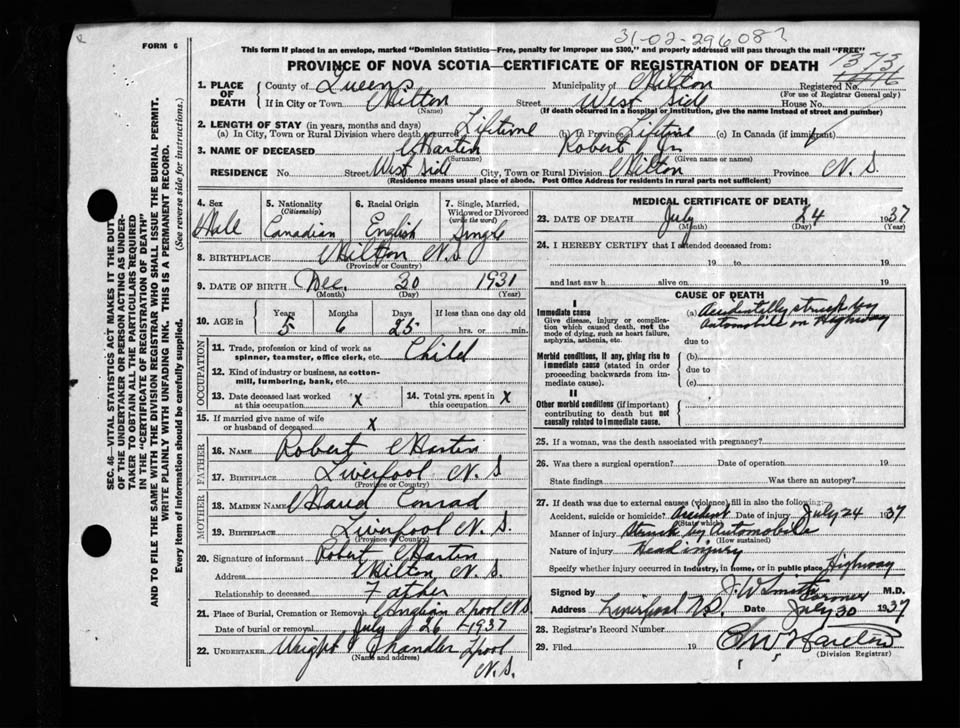 31-02-296083
FORM 6
This form if placed in an envelope, marked "Dominion Statistics—Free, penalty for improper use $300," and properly addressed will pass through the mail "FREE"
PROVINCE OF NOVA SCOTIA—CERTIFICATE OF REGISTRATION OF DEATH
1373
1. PLACE OF DEATH
County of Queens Municipality of Milton Registered No.
(For use of Registrar General only)
If in City or Town Milton Street West Side House No.
(Name) (If death occurred in a hospital or institution, give the name instead of street and number)
2. LENGTH OF STAY (in years, months and days)
(a) In City, Town or Rural Division where death occurred Lifetime (b) In Province Lifetime (c) In Canada (if immigrant)
3. NAME OF DECEASED Martin Robert Jr
(Surname) (Given name or names)
RESIDENCE No. Street West Side City, Town or Rural Division Milton Province N.S.
(Residence means usual place of abode. Post Office Address for residents in rural parts not sufficient)
4. Sex Male
5. Nationality (Citizenship) Canadian
6. Racial Origin English
7. Single, Married, Widowed or Divorced (write the word) Single
8. BIRTHPLACE Milton N.S
(Province or Country)
9. DATE OF BIRTH Dec. 30 1931
(Month) (Day) (Year)
10. AGE in Years 5 Months 6 Days 25 If less than one day old hrs. or min.
OCCUPATION
11. Trade, profession or kind of work as spinner, teamster, office clerk, etc. Child
12. Kind of industry or business, as cotton-mill, lumbering, bank, etc.
13. Date deceased last worked at this occupation x
14. Total yrs. spent in this occupation x
15. If married give name of wife or husband of deceased x
FATHER
16. NAME Robert Martin
17. BIRTHPLACE Liverpool N.S
(Province or Country)
MOTHER
18. MAIDEN NAME Maud Conrad
19. BIRTHPLACE Liverpool N.S.
(Province or Country)
20. Signature of informant Robert Martin
Address Milton N.S.
Relationship to deceased Father
21. Place of Burial, Cremation or Removal L'pool N.S.
Date of burial or removal July 26 1937
22. UNDERTAKER Wright Chandler L'pool
(Name and address) N.S.
MEDICAL CERTIFICATE OF DEATH
23. DATE OF DEATH July 24 1937
(Month) (Day) (Year)
24. I HEREBY CERTIFY that I attended deceased from:
19 to 19
and last saw h alive on 19
CAUSE OF DEATH
I
Immediate cause
Give disease, injury or complication which caused death, not the mode of dying, such as heart failure, asphyxia, asthenia, etc.
(a) Accidentally struck by
Automobile on Highway
due to
Morbid conditions, if any, giving rise to immediate cause (stated in order proceeding backwards from immediate cause).
(b)
due to
(c)
II
Other morbid conditions (if important) contributing to death but not causally related to immediate cause.
25. If a woman, was the death associated with pregnancy?
26. Was there a surgical operation? Date of operation 19
State findings Was there an autopsy?
27. If death was due to external causes (violence) fill in also the following:
Accident, suicide or homicide? Accident Date of injury July 24 1937
(State which)
Manner of injury Struck by Automobile
(How sustained)
Nature of injury Head injury
Specify whether injury occurred in industry, in home, or in public place Highway
Signed by J. W. Smith Coroner M.D.
Address Liverpool N.S. Date July 30 1937
28. Registrar's Record Number
29. Filed 19
(Division Registrar)
SEC. 46—VITAL STATISTICS ACT MAKES IT THE DUTY
OF THE UNDERTAKER OR PERSON ACTING AS UNDER-
TAKER TO OBTAIN ALL THE PARTICULARS REQUIRED
IN THE "CERTIFICATE OF REGISTRATION OF DEATH"
AND TO FILE THE SAME WITH THE DIVISION REGISTRAR WHO SHALL ISSUE THE BURIAL PERMIT.
WRITE PLAINLY WITH UNFADING INK. THIS IS A PERMANENT RECORD.
Every item of information should be carefully supplied. (See reverse side for instructions.)